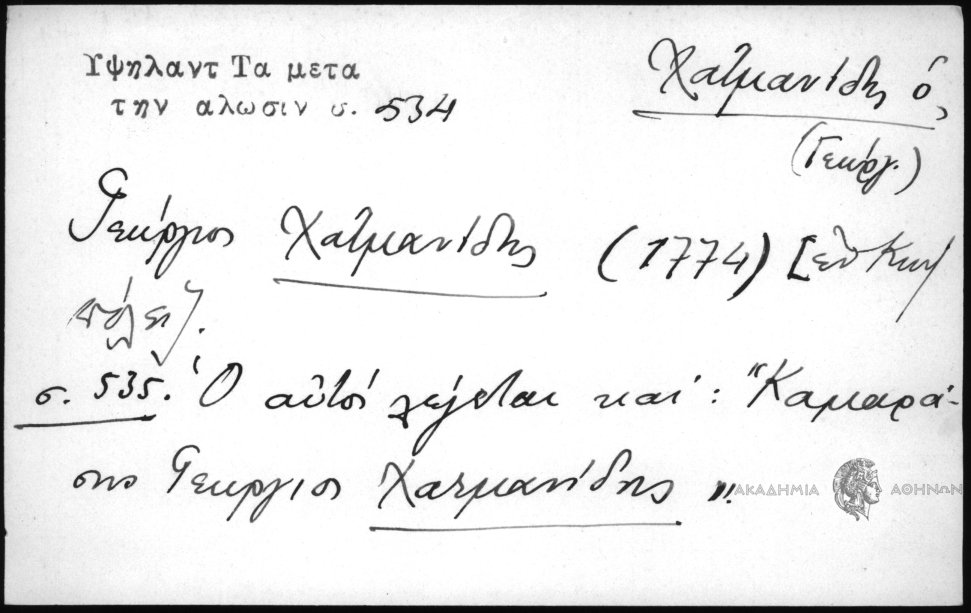 Υψηλαντ Τα μετα
την αλωσιν σ. 534
Χατμανίδης ὁ,
(Γεώργ.)
Γεώργιος Χατμανίδης (1774) [ἐν Κων/
πόλει].
σ. 535. Ὁ αὐτὸς λέγεται καί: "Καμαρά-
σης Γεώργιος Χατμανίδης".
ΑΚΑΔΗΜΙΑ ΑΘΗΝΩΝ